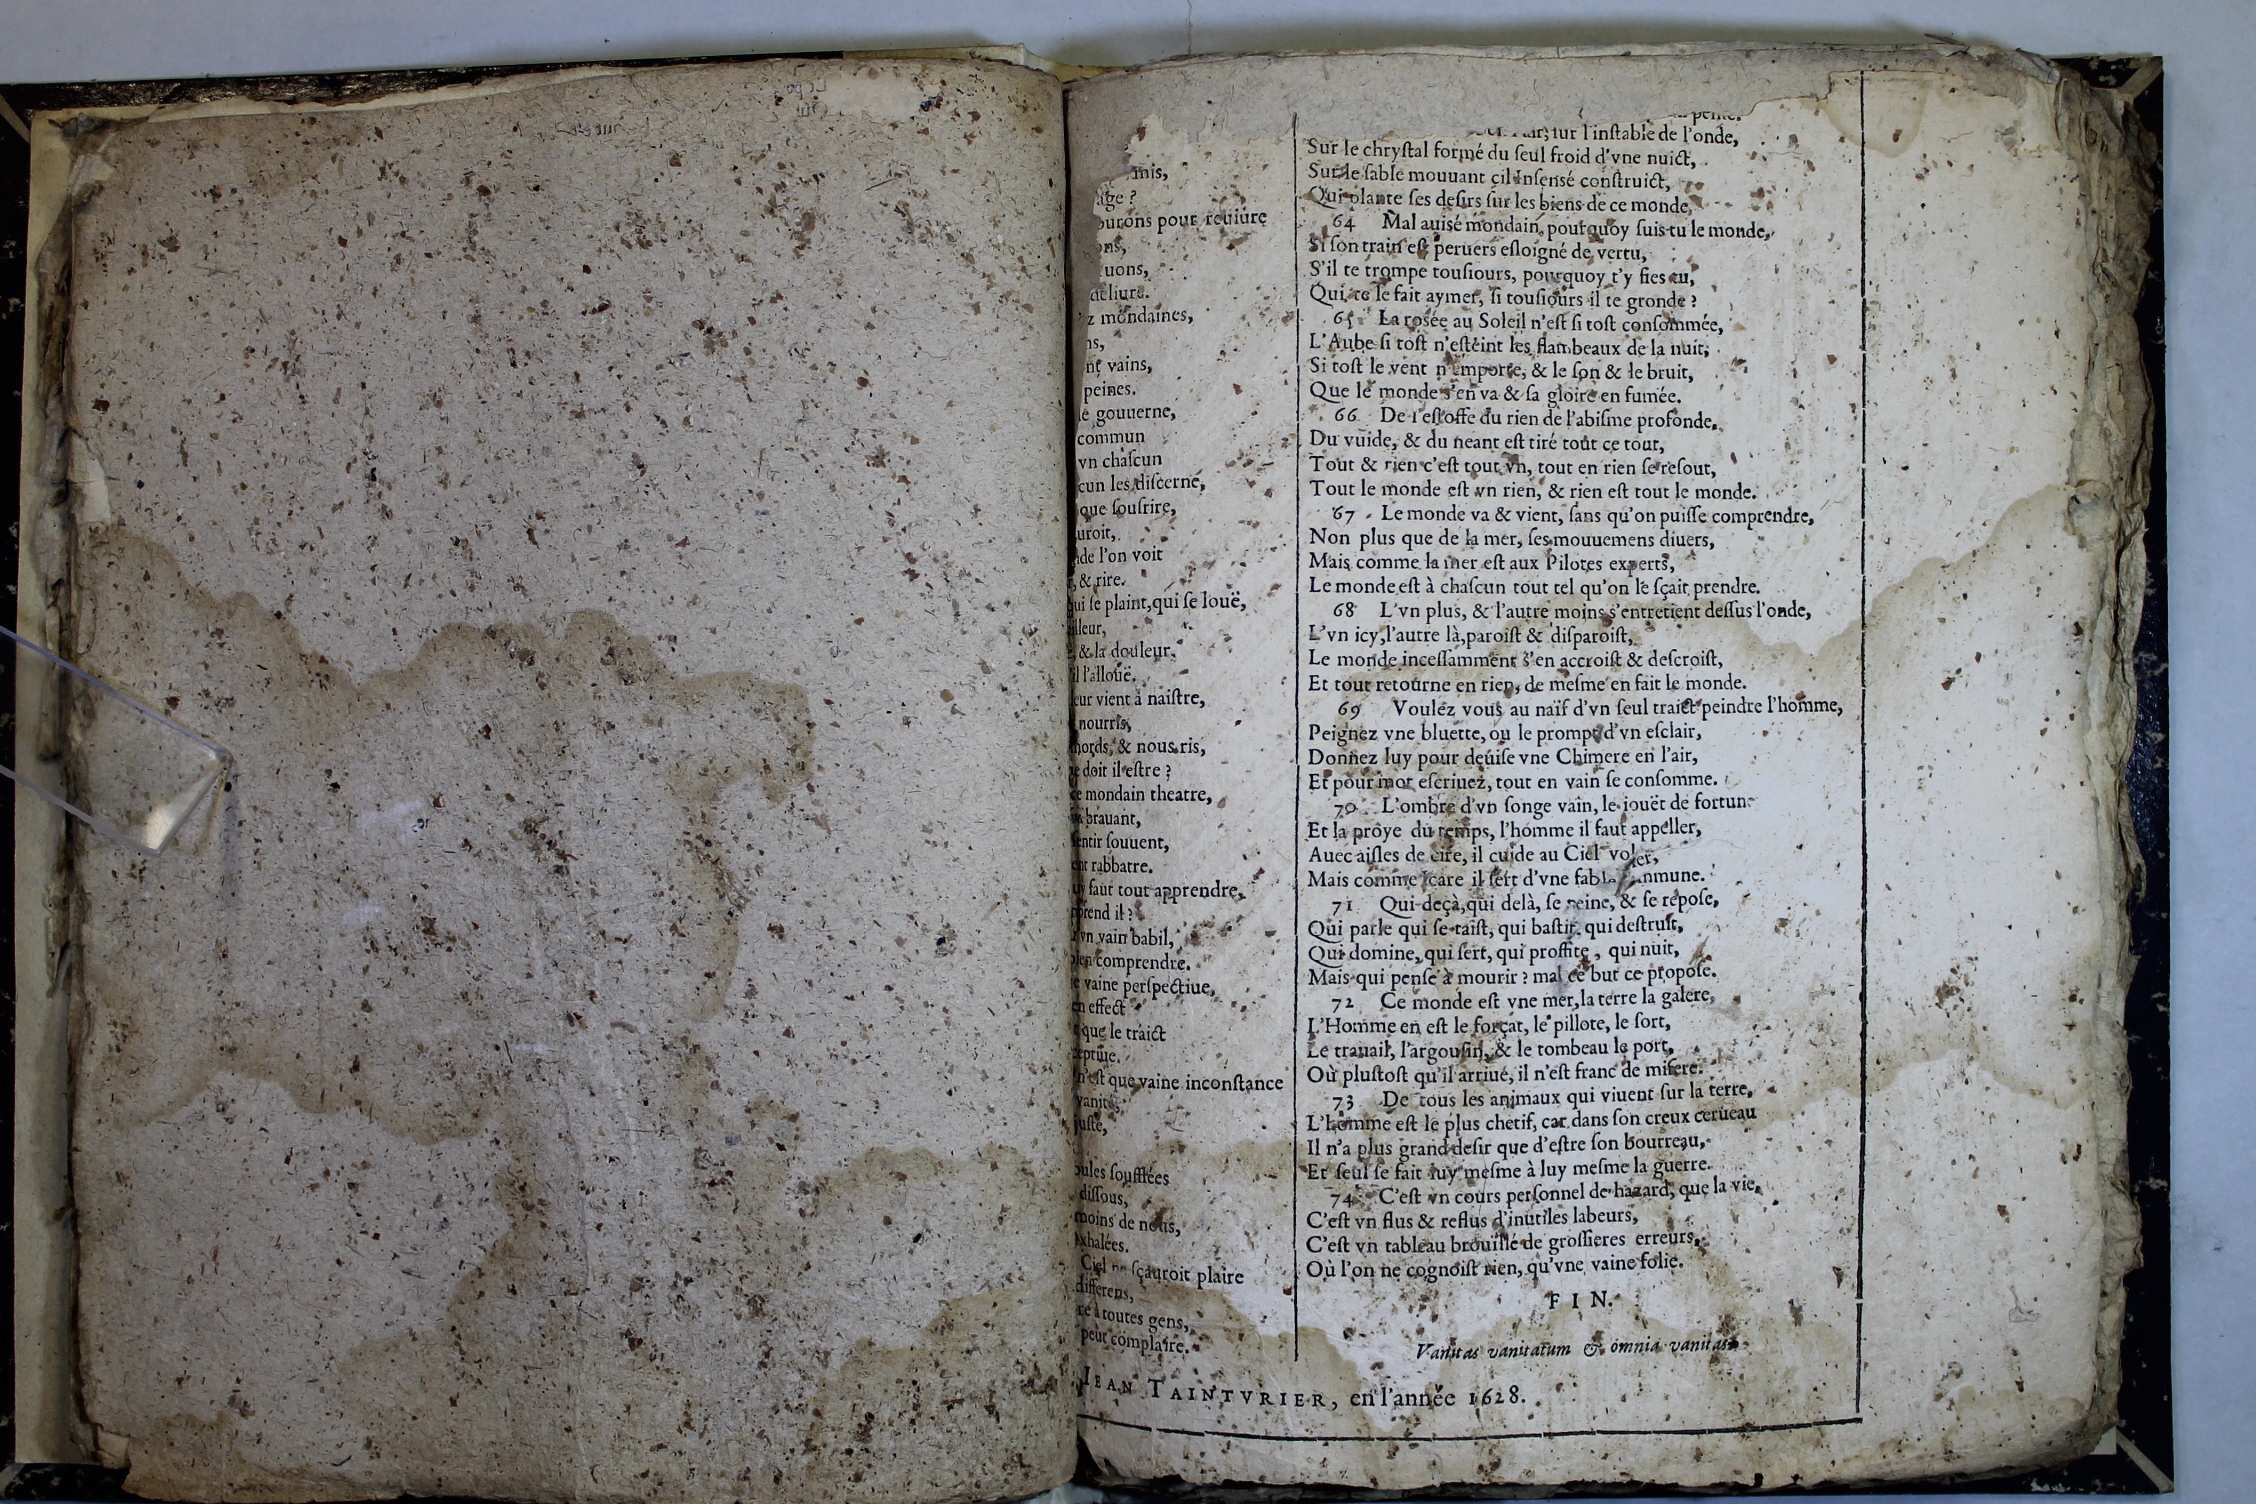 mis,
age ?
ourons pour reuiure
ons,
uons,
deliure.
z mondaines,
ns,
nt vains,
peines.
le gouuerne,
commun
vn chaſcun
cun les diſcerne,
que ſouſrire,
uroit,
nde l'on voit
, & rire.
qui ſe plaint, qui ſe louë,
illeur,
, & la douleur.
il l'allouë.
eur vient à naiſtre,
nourris,
mords, & nous ris,
e doit il eſtre ?
ce mondain theatre,
brauant,
ſentir ſouuent,
ent rabbatre.
uy faut tout apprendre,
prend il ?
vn vain babil,
bien comprendre.
e vaine perſpectiue,
en effect
que le traict
ceptiue.
n'eſt que vaine inconſtance
vanité,
juſte,
oules ſoufflées
diſſous,
moins de nous,
exhalées.
Ciel ne ſçauroit plaire
differens,
re à toutes gens,
peut complaire.
peine.
ſur l'inſtable de l'onde,
Sur le chryſtal formé du ſeul froid d'vne nuict,
Sur le ſable mouuant cil Inſenſé conſtruict,
Qui plante ſes deſirs ſur les biens de ce monde,
64 Mal auiſé mondain, pourquoy ſuis-tu le monde,
Si ſon train eſt peruers eſloigné de vertu,
S'il te trompe touſiours, pourquoy t'y fies tu,
Qui te le fait aymer, ſi touſiours il te gronde ?
65 La roſée au Soleil n'eſt ſi toſt conſommée,
L'Aube ſi toſt n'eſteint les flambeaux de la nuit,
Si toſt le vent n'emporte, & le ſon & le bruit,
Que le monde s'en va & ſa gloire en fumée.
66 De l'eſtoffe du rien de l'abiſme profonde,
Du vuide, & du neant eſt tiré tout ce tout,
Tout & rien c'eſt tout vn, tout en rien ſe reſout,
Tout le monde eſt vn rien, & rien eſt tout le monde.
67 Le monde va & vient, ſans qu'on puiſſe comprendre,
Non plus que de la mer, ſes mouuemens diuers,
Mais comme la mer eſt aux Pilotes experts,
Le monde eſt à chaſcun tout tel qu'on le ſçait prendre.
68 L'vn plus, & l'autre moins s'entretient deſſus l'onde,
L'vn icy, l'autre là, paroiſt & diſparoiſt,
Le monde inceſſamment s'en accroiſt & deſcroiſt,
Et tout retourne en rien, de meſme en fait le monde.
69 Voulez vous au naïf d'vn ſeul traict peindre l'homme,
Peignez vne bluette, ou le prompt d'vn eſclair,
Donnez luy pour deuiſe vne Chimere en l'air,
Et pour mot eſcriuez, tout en vain ſe conſomme.
70 L'ombre d'vn ſonge vain, le jouët de fortune
Et la proye du temps, l'homme il faut appeller,
Auec aiſles de cire, il cuide au Ciel voler,
Mais comme Icare il ſert d'vne fable commune.
71 Qui deçà, qui delà, ſe peine, & ſe repoſe,
Qui parle qui ſe taiſt, qui baſtit qui deſtruit,
Qui domine, qui ſert, qui proffite, qui nuit,
Mais qui penſe à mourir ? mal ce but ce propoſe.
72 Ce monde eſt vne mer, la terre la galere,
L'Homme en eſt le forçat, le pillote, le ſort,
Le trauail, l'argouſin, & le tombeau le port,
Où pluſtoſt qu'il arriue, il n'eſt franc de miſere.
73 De tous les animaux qui viuent ſur la terre,
L'homme eſt le plus chetif, car dans ſon creux cerueau
Il n'a plus grand deſir que d'eſtre ſon bourreau,
Et ſeul ſe fait luy meſme à luy meſme la guerre.
74 C'eſt vn cours perſonnel de hazard, que la vie,
C'eſt vn flus & reflus d'inutiles labeurs,
C'eſt vn tableau brouillé de groſſieres erreurs,
Où l'on ne cognoiſt rien, qu'vne vaine folie.
FIN.
Vanitas vanitatum & omnia vanitas.
IEAN TAINTVRIER, en l'année 1628.